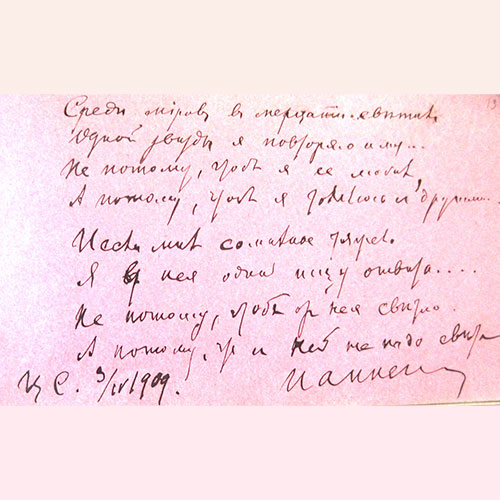 Среди мiров, в мерцании свѣтил
Одной звѣзды я повторяю имя...
Не потому, чтоб я ее любил,
А потому, что я томлюсь с другими...
И если мнѣ сомнѣнье тяжело
Я у нея одной ищу отвѣта....
Не потому, чтоб от нея свѣтло.
А потому, что с ней не надо свѣта
Ц С. 3/IV 1909.